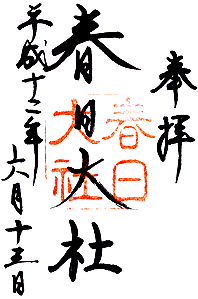 奉拝
春日大社
春日大社
平成十二年
六月十三日